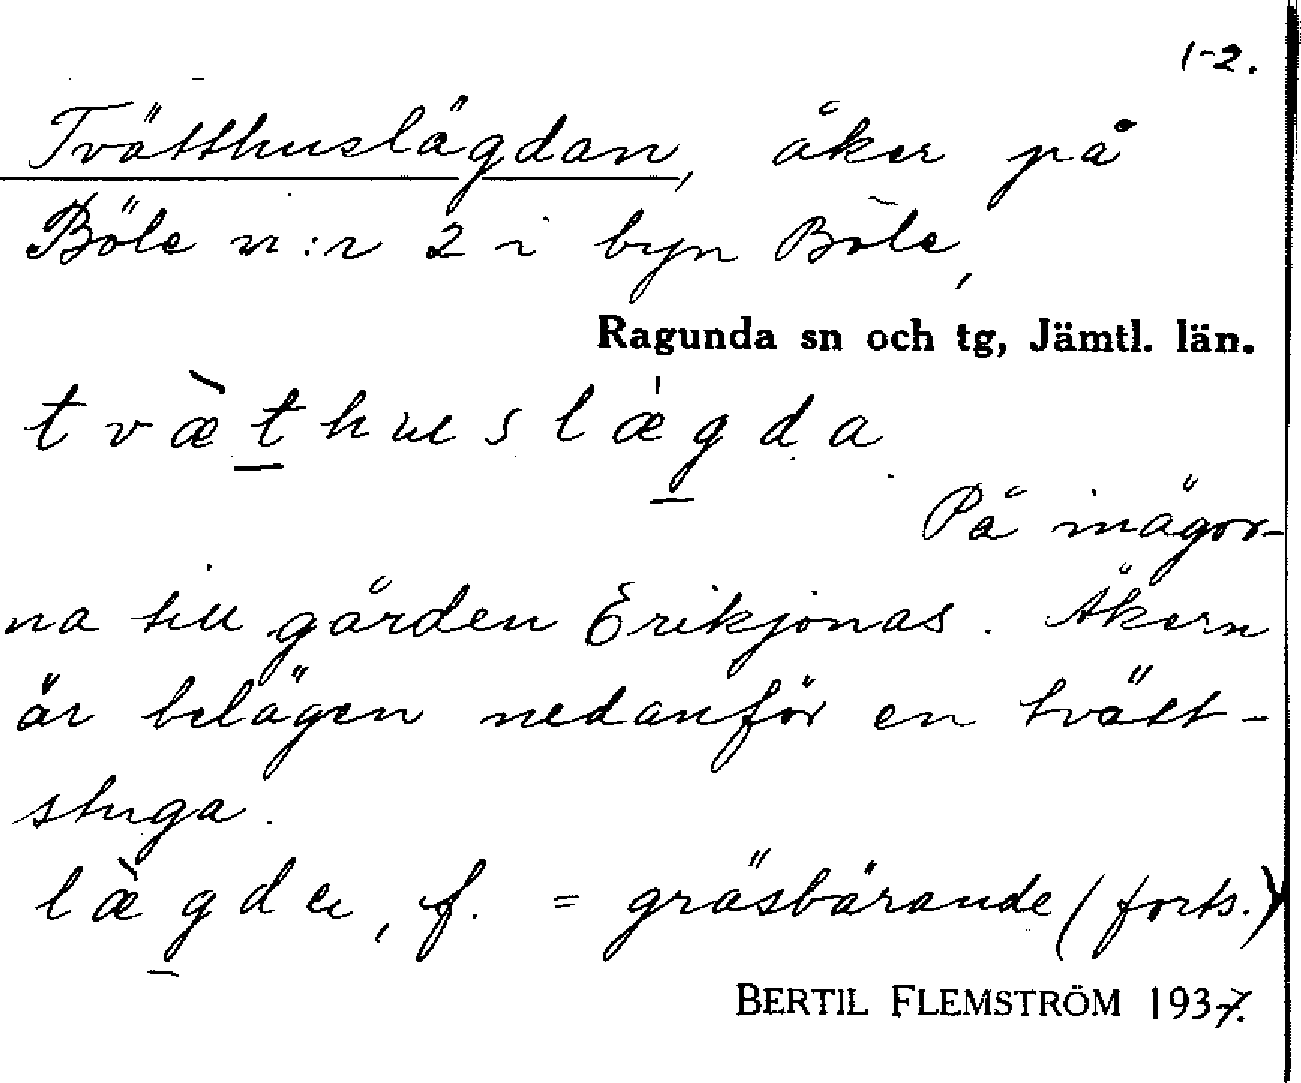 1-2.
Tvätthuslägdan, åker på
Böle n:r 2 i byn Böle,
Ragunda sn och tg, Jämtl. län.
tvæ̀thusslǽgda.
På inägor-
na till gården Erikjonas. Åkern
är belägen nedanför en tvätt-
stuga.
læ̀gda, f. = gräsbärande (forts.)
BERTIL FLEMSTRÖM 1937.